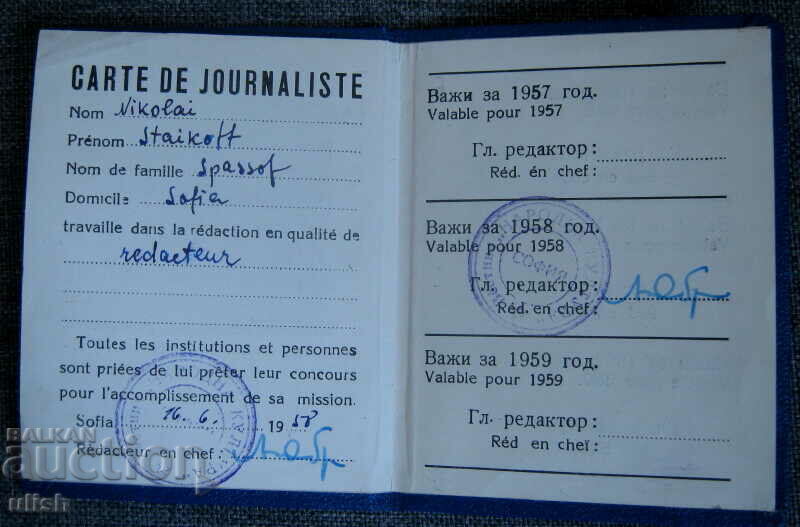 CARTE DE JOURNALISTE
Nom Nikolai
Prénom Staikoff
Nom de famille Spassof
Domicile Sofia
travaille dans la rédaction en qualité de
redacteur
Toutes les institutions et personnes
sont priées de lui prêter leur concours
pour l'accomplissement de sa mission.
Sofia 16. 6. 1958
Rédacteur en chef:
Важи за 1957 год.
Valable pour 1957
Гл. редактор:
Réd. én chef:
Важи за 1958 год.
Valable pour 1958
Гл. редактор:
Réd. en chef:
НАРОДНА КУЛТУРА
СОФИЯ
Важи за 1959 год.
Valable pour 1959
Гл. редактор:
Réd en cheï:
BALKAN
auction
ulish